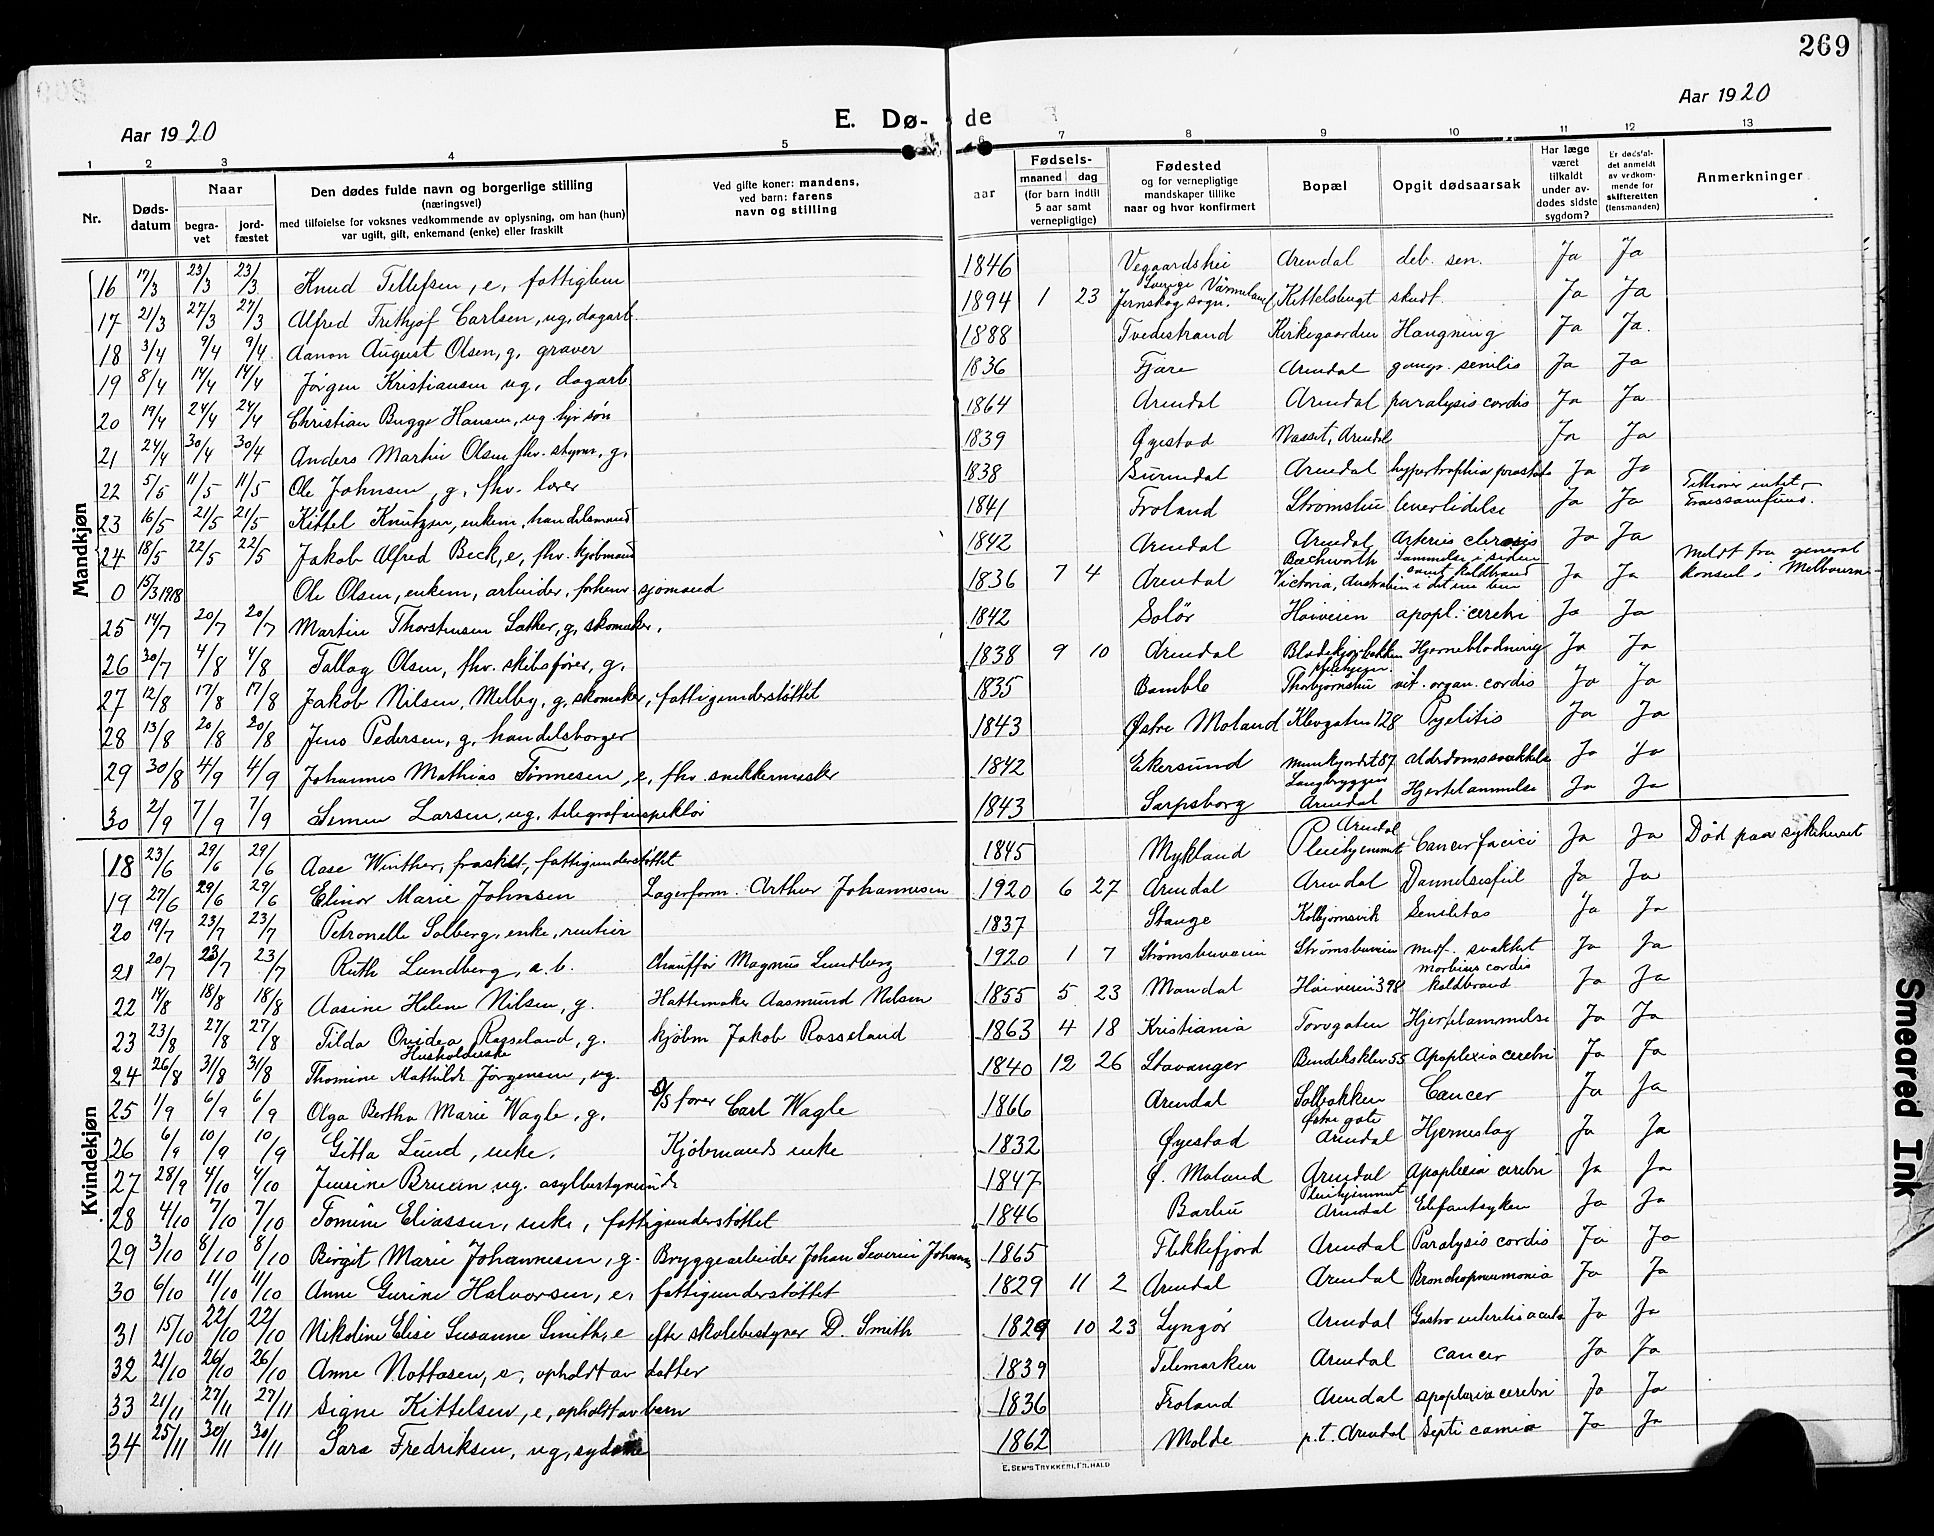 269
Aar 1920
E. Dø- de
Aar 1920
1 2 3 4 5 6 7 8 9 10 11 12 13
Nr. Døds-datum Naar begra-vet jord-fæstet Den dødes fulde navn og borgerlige stilling (næringsvei) med tilføielse for voksnes vedkommende av oplysning, om han (hun) var ugift, gift, enkemand (enke) eller fraskilt Ved gifte koner: mandens, ved barn: farens navn og stilling aar Fødsels- maaned dag (for barn indtil 5 aar samt vernepligtige) Fødested og for vernepligtige mandskaper tillike naar og hvor konfirmert Bopæl Opgit dødsaarsak Har læge været tilkaldt under av-dødes sidste sygdom? Er dødsfal-det anmeldt av vedkom-mende for skifteretten (lensmanden) Anmerkninger
Mandkjøn
16 17/3 23/3 23/3 Knud Tellefsen, e, fattiglem 1846 Vegaardshei Arendal deb. sen. Ja Ja
17 21/3 27/3 27/3 Alfred Frithjof Carlsen, ug, dagarb. 1894 1 23 Sverige Värmland Jernskog sogn. Kittelsbugt skudt. Ja Ja
18 3/4 9/4 9/4 Aanon August Olsen, g, graver 1888 Tvedestrand Kirkegaarden Hangning Ja Ja.
19 8/4 14/4 14/4 Jørgen Kristiansen ug, dagarb. 1836 Fjære Arendal gangr. senilis Ja Ja
20 19/4 24/4 24/4 Christian Bugge Hansen, ug 1864 Arendal Arendal paralysis cordis Ja Ja
21 24/4 30/4 30/4 Anders Martin Olsen fhv. styrm, g, 1839 Øyestad Arendal Ja Ja
22 5/5 11/5 11/5 Ole Johnsen, g, fhv. lærer 1838 Surendal Arendal hypertrophia prostata Ja Ja
23 16/5 21/5 21/5 Kittel Knutzen, enkem, handelsmand 1841 Froland Strømsbu leverlidelse Ja Ja Tilhører intet Trossamfund.
24 18/5 22/5 22/5 Jakob Alfred Beck, e, fhv. kjøbmand 1842 Arendal Arendal Arteriosclerosis Ja Ja
0 15/3 1918 Ole Olsen, enkem, arbeider, forhenv sjømand 1836 7 4 Arendal Beechworth Victoria, Australien samt koldbrand i det ene ben Ja Ja Meldt fra generalkonsul i Melbourne
25 14/7 20/7 20/7 Martin Thorstensen Sæther, g, skomaker. 1842 Solør Høiveien apopl. cerebri Ja Ja
26 30/7 4/8 4/8 Tallag Olsen, fhv. skibsfører, g, 1838 9 10 Arendal Blødekjærbakken Hjerneblødning Ja Ja
27 12/8 17/8 17/8 Jakob Nilsen, Melby, g, skomaker, fattigunderstøttet 1835 Bamble pleiehjem. Thorbjørnsbu vit. organ. cordis Ja Ja
28 13/8 20/8 20/8 Jens Pedersen, g, handelsborger 1843 Østre Moland Klevgaten 128 Pyelitis Ja Ja
29 30/8 4/9 4/9 Johannes Mathias Tønnesen, e, fhv. snekkermester 1842 Ekersund Munkejordet 87 Alderdomssvækkelse Ja Ja
30 2/9 7/9 7/9 Simen Larsen, ug. telegrafinspektør 1843 Sarpsborg Langbryggen Arendal Hjertelammelse Ja Ja
Kvindekjøn
18 23/6 29/6 29/6 Aase Winther, fraskilt, fattigunderstøttet 1845 Mykland Arendal Pleiehjemmet Cancer facici Ja Ja Død paa sykehuset
19 27/6 29/6 29/6 Elinor Marie Johnsen Lagerform. Arthur Johannesen 1920 6 27 Arendal Arendal Dannelsesfeil Ja Ja
20 19/7 23/7 23/7 Petronelle Solberg, enke, rentier 1837 Stange Kolbjørnsvik Senilitas Ja Ja
21 20/7 23/7 23/7 Ruth Lundberg, a. b. Chauffør Magnus Lundberg 1920 1 7 Strømsbuveien Strømsbuveien medf. svakhet Ja Ja
22 14/8 18/8 18/8 Aasine Helene Nilsen, g. Hattemaker Aasmund Nilsen 1855 5 23 Mandal Høiveien 398 morbus cordis koldbrand Ja Ja
23 23/8 27/8 27/8 Tilda Ovidea Rosseland, g. kjøbm Jakob Rosseland 1863 4 18 Kristiania Torvgaten Hjertelammelse Ja Ja
24 26/8 31/8 31/8 Husholderske Thomine Mathilde Jørgensen, ug. 1840 12 26 Stavanger Bendiksklev 55 Apoplexia cerebri Ja Ja
25 1/9 6/9 6/9 Olga Bertha Marie Wagle, g, D/S fører Carl Wagle 1866 Arendal Solbakken Cancer Ja Ja
26 6/9 10/9 10/9 Gitta Lund, enke. Kjøbmands enke 1832 Øyestad Østregate Arendal Hjerneslag Ja Ja
27 28/9 4/10 4/10 Jensine Bruun ug. asylbestyrerinde 1847 Ø. Moland Arendal Apoplexia cerebri Ja Ja
28 4/10 7/10 7/10 Tomine Eliassen, enke, fattigunderstøttet 1846 Barbu Pleiehjemmet Arendal Elefantsyken Ja Ja
29 3/10 8/10 8/10 Birgit Marie Johannesen, g. Bryggearbeider Johan Severin Johannes 1865 Flekkefjord Arendal Paralysis cordis Ja Ja
30 6/10 11/10 11/10 Anne Gurine Halvorsen, e, fattigunderstøttet 1829 11 2 Arendal Arendal Bronchopneumonia Ja Ja
31 15/10 22/10 22/10 Nikoline Elise Susanne Smith, e efter skolebestyrer D. Smith 1829 10 23 Lyngør Arendal Gastro enteritis acuta Ja Ja
32 21/10 26/10 26/10 Anne Nottosen, e, opholdt av datter 1839 Telemarken Arendal cancer Ja Ja
33 21/11 27/11 27/11 Signe Kittelsen, e, opholdt av barn 1836 Froland Arendal apoplexia cerebri Ja Ja
34 25/11 30/11 30/11 Sara Fredriksen, ug, sydame 1862 Molde p.t. Arendal Septicæmia Ja Ja
E. SEM'S TRYKKERI, FR.HALD
Smeared Ink